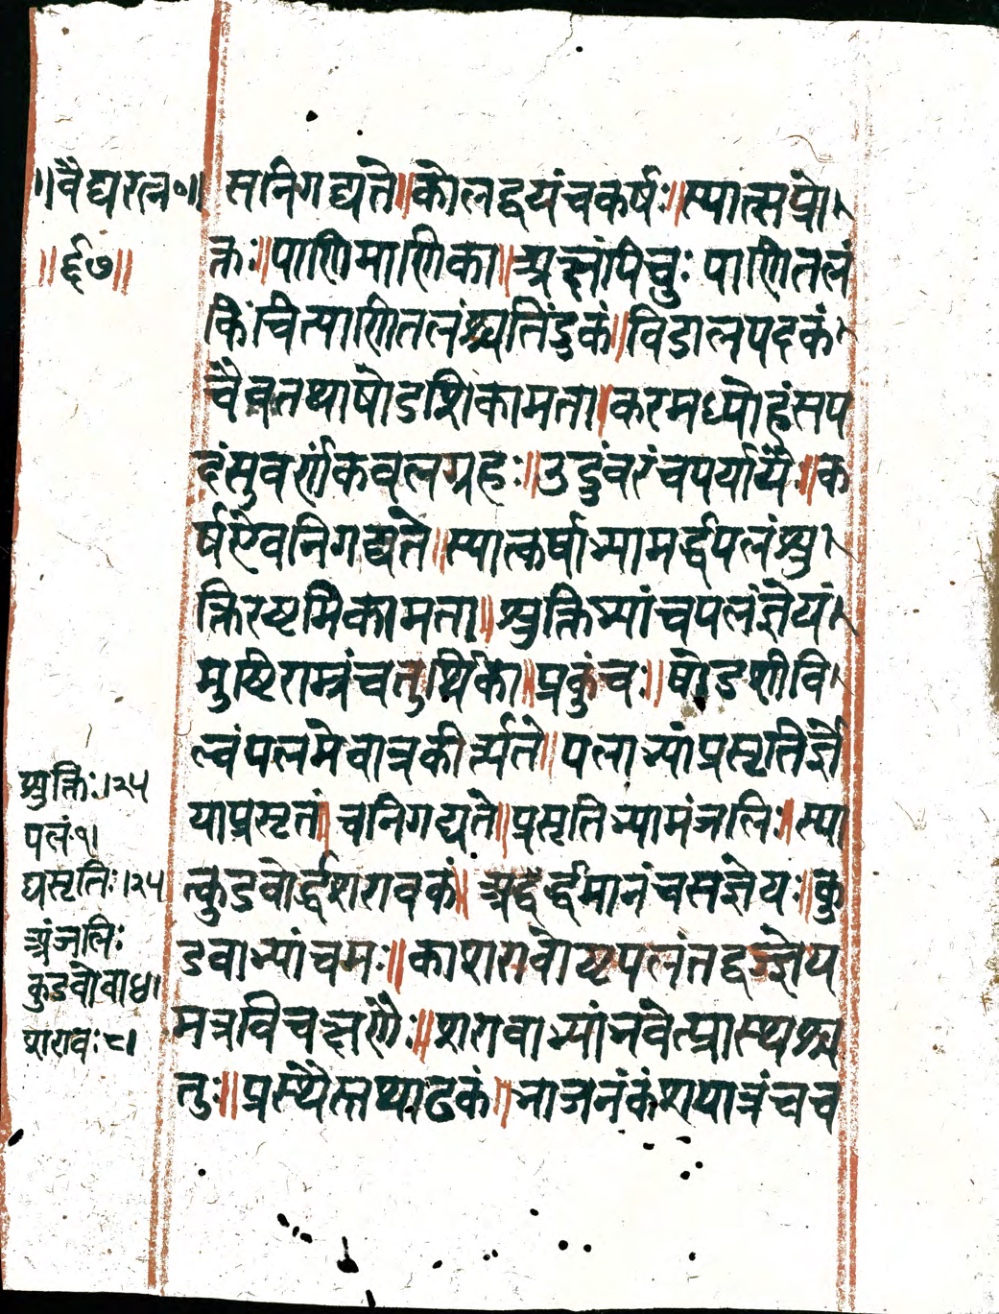 ॥वैद्यरत्न॰॥
॥६७॥
सनिगद्यते॥कोलद्वयंचकर्षः॥स्यात्सप्रो
क्तः॥पाणिमाणिका॥अक्षंपिचुः पाणितलं
किंचित्पाणितलंश्चतिंडुकं॥विडालपदकं
चैवतथाषोडशिकामता॥करमध्योहंसप
दंसुवर्णंकवलग्रहः॥उडुंवरंचपर्यायैः॥क
र्षएैवनिगद्यते॥स्यात्कर्षाभ्यामर्द्धपलंश्शु
क्तिरष्टमिकामता॥श्शुक्तिभ्यांचपलंज्ञेयं
मुष्टिराम्रंचतुर्थिका॥प्रकुंचः॥षोडशीवि
ल्वंपलमेवात्रकीर्त्यते॥पलाभ्यांप्रसृतिर्ज्ञे
याप्रसृतं॥चनिगद्यते॥प्रसृतिभ्यामंजलिः॥स्या
त्कुडवोर्द्धशरावकं॥ अद्वर्द्धमानंचसज्ञेयः॥कु
डवाभ्यांचमः॥काशरावोष्टपलंतद्वज्ज्ञेय
मत्रविचक्षणैः॥शरावाभ्यांभवेत्प्रास्थश्च
तुः॥प्रस्थैस्तथाढकं॥भाजनंकंशपात्रंचच
श्शुक्तिः।२५
पलं॰१।
प्रसृतिः।२५
अंजलिः
कुडवोवा४।
शरावः८।